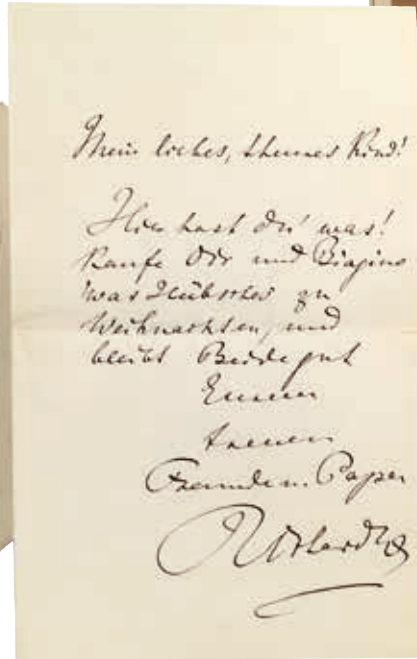 Mein liebes, theures Kind!
Hier hast Du' was!
Kaufe Dir und Biagino
was Hübsches zu
Weihnachten, und
bleibt Beide gut
Eurem
treuen
Freunde u. Papa